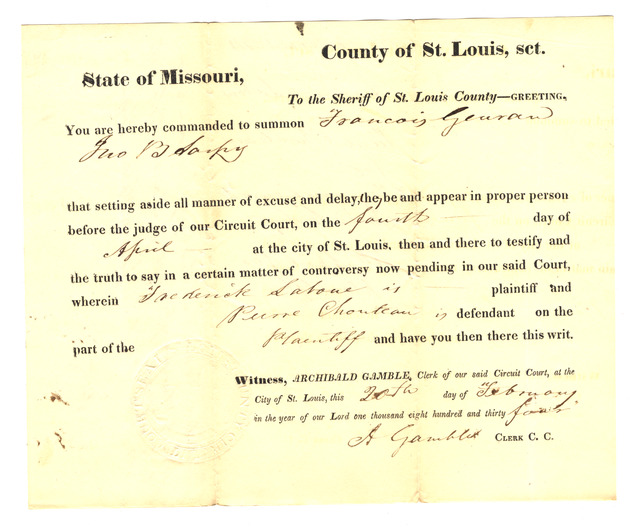 County of St. Louis, sct.
State of Missouri,
To the Sheriff of St. Louis County—GREETING,
You are hereby commanded to summon Francois
Jno B Sarpy
that setting aside all manner of excuse and delay, (he) be and appear in proper person
before the judge of our Circuit Court, on the fourth day of
April at the city of St. Louis, then and there to testify and
the truth to say in a certain matter of controversy now pending in our said Court,
wherein Frederick is plaintiff and
Pierre Chouteau is defendant on the
part of the Plaintiff and have you then there this writ.
Witness, ARCHIBALD GAMBLE, Clerk of our said Circuit Court, at the
City of St. Louis, this 20th day of February
in the year of our Lord one thousand eight hundred and thirty four
A Gamble CLERK C. C.